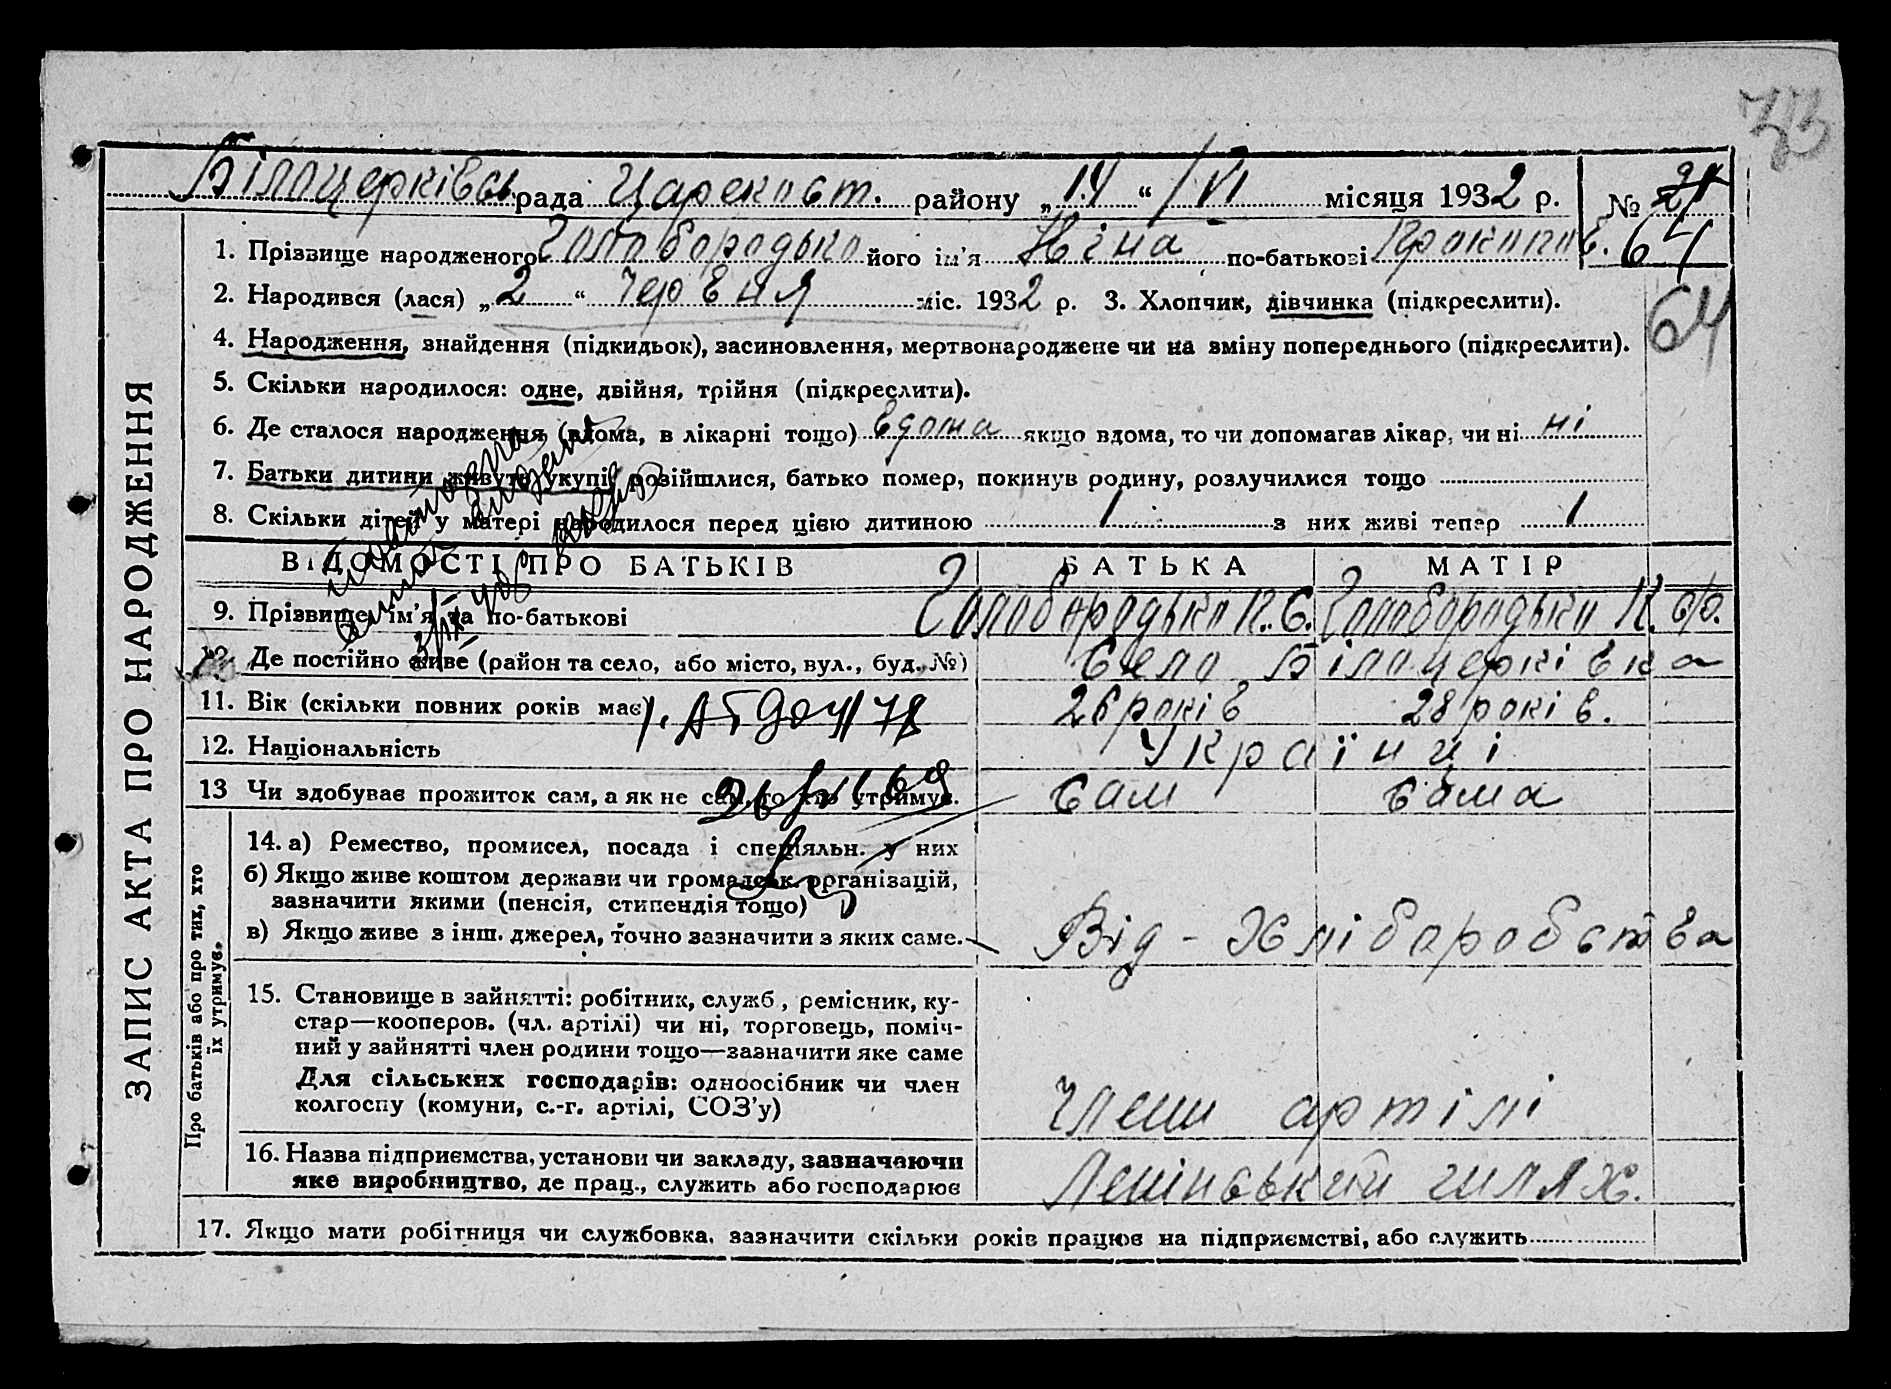 33
Білоцерківсь. рада Царекост. району „14“ / VI місяця 1932 р. №
64
1. Прізвище народженого Голобородько його ім'я Ніна по-батькові Прокопів.
2. Народився (лася) „2“ Червня міс. 1932 р. 3. Хлопчик, дівчинка (підкреслити).
64
4. Народження, знайдення (підкидьок), засиновлення, мертвонароджене чи на зміну попереднього (підкреслити).
5. Скільки народилося: одне, двійня, трійня (підкреслити).
6. Де сталося народження (вдома, в лікарні тощо) вдома якщо вдома, то чи допомагав лікар, чи ні ні
7. Батьки дитини живуть укупі, розійшлися, батько помер, покинув родину, розлучилися тощо
8. Скільки дітей у матері народилося перед цією дитиною 1 з них живі тепер 1
ВІДОМОСТІ ПРО БАТЬКІВ БАТЬКА МАТІР
9. Прізвище, ім'я та по-батькові Голобородько П. С. Голобородько К. Ф.
10. Де постійно живе (район та село, або місто, вул., буд. №) Село Білоцерківка
11. Вік (скільки повних років має) 26 років 28 років.
12. Національність Українці
13 Чи здобуває прожиток сам, а як не сам, то хто утримує. Сам Сама
14. а) Ремество, промисел, посада і спеціяльн. у них
б) Якщо живе коштом держави чи громадськ. організацій,
зазначити якими (пенсія, стипендія тощо)
в) Якщо живе з інш. джерел, точно зазначити з яких саме. Від - Хліборобства
15. Становище в зайнятті: робітник, служб., ремісник, ку-
стар—кооперов. (чл. артілі) чи ні, торговець, поміч-
ний у зайнятті член родини тощо—зазначити яке саме
Для сільських господарів: одноосібник чи член
колгоспу (комуни, с.-г. артілі, СОЗ'у) Члени артілі
16. Назва підприємства, установи чи закладу, зазначаючи
яке виробництво, де прац., служить або господарює Ленінський шлях.
17. Якщо мати робітниця чи службовка, зазначити скільки років працює на підприємстві, або служить
ЗАПИС АКТА ПРО НАРОДЖЕННЯ
Про батьків або про тих, хто
їх утримує.